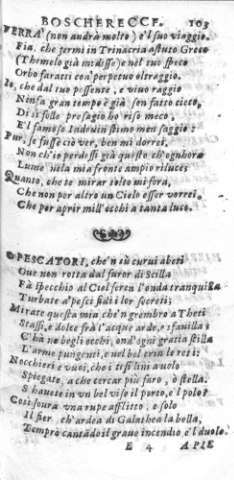 BOSCHERECCE. 103
VERRÀ (non andrà molto) e'l suo viaggio.
Fia, che fermi in Trinacria astuto Greco
(Themolo già mi disse) e nel tuo speco
Orbo faratti con perpetuo oltraggio.
Io, che dal tuo possente, e vivo raggio
Non fa gran tempo è già son fatto cieco,
Di sì folle presagio hò riso meco;
E'l famoso Indouin stimo men saggio:
Pur, se fusse ciò ver, ben mi dorrei,
Non ch'io perdessi già questo ch'ognhora
Lume ne la mia fronte ampio riluce;
Quanto, che te mirar tolto mi fora,
Che non per altro un Cielo esser vorrei,
Che per aprir mill'occhi a tanta luce.
O PESCATORI, che'n sù curui abeti
Oue non rotta dal furor di Scilla
Fà specchio al Ciel seren l'onda tranquilla
Turbate a' pesci fidi i lor secreti;
Mirate questa mia che'n grembo a Theti
Stassi, e dolce frà l'acque arde, e sfauilla:
C'hà ne begli occhi, ond'ogni gratia stilla
L'arme pungenti, e nel bel crin le reti:
Nocchieri e vuoi, che i tesi lini a uolo
Spiegate, a che cercar più faro, ò stella.
S'hauete in un bel viso il porto, e'l polo?
Così soura una rupe afflitto, e solo
Il fier, ch'ardea di Galathea la bella,
Temprò cantãdo il graue incendio e'l duolo.
E 4 A PIE